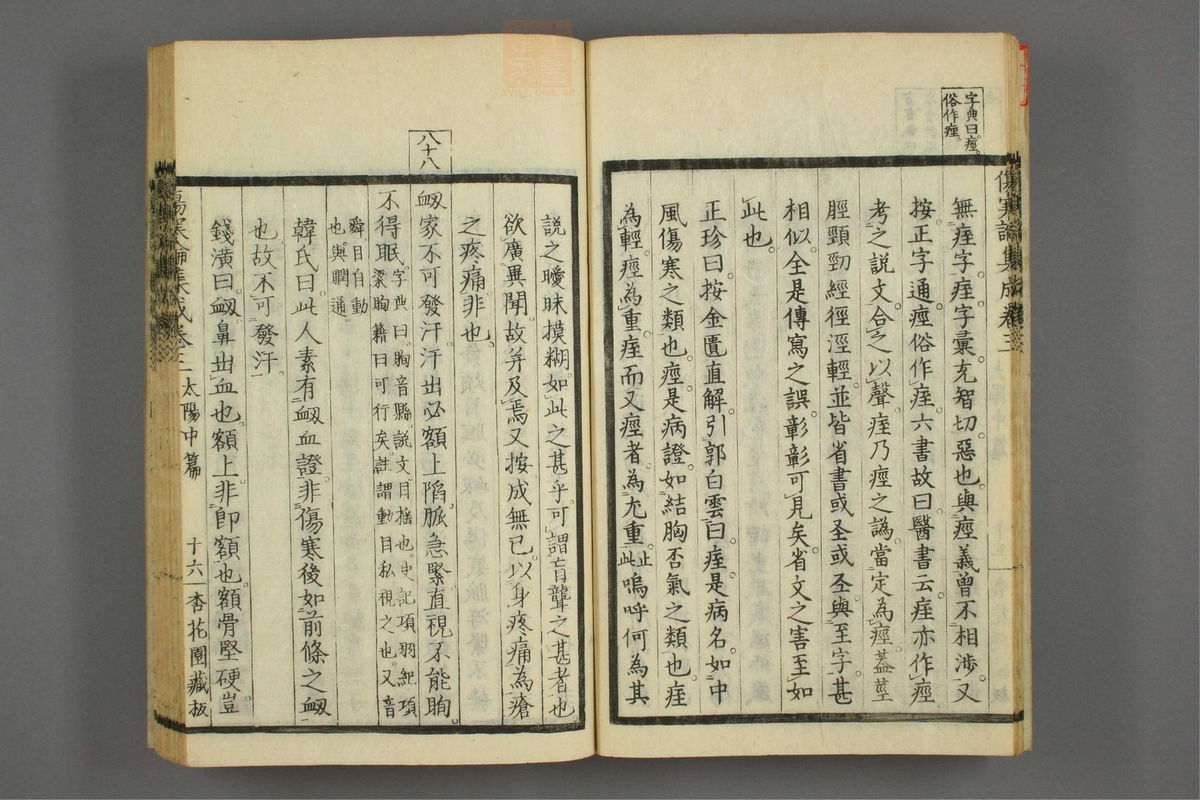 字典曰。痙。
俗作痓。
傷寒論集成卷三
無痓字。痓字彙。充智切。惡也。與痙義曾不相涉。又
按。正字通。痙俗作痓。六書故曰。醫書云。痓亦作痙。
考之說文。合之以聲。痓乃痙之譌。當定為痙。蓋莖
脛頸勁經徑涇輕並皆省書或圣或圣。與至字甚
相似。全是傳寫之誤。彰彰可見矣。省文之害至如
此也。
正珍曰。按金匱直解引郭白雲曰。痓是病名。如中
風傷寒之類也。痙是病證。如結胸否氣之類也。痓
為輕。痙為重。痓而又痙者為尤重。止此嗚呼何為其
說之曖昧摸糊。如此之甚乎。可謂盲聾之甚者也
欲廣異聞。故并及焉。又按。成無已。以身疼痛為瘡
之疼痛。非也。
八十八
衂家不可發汗。汗出必額上陷。脈急緊。直視不能眴。
不得眠。字典曰。眴音縣。說文。目搖也。史記項羽紀。項
梁眴籍曰。可行矣。註謂動目私視之也。又音
舜。目自動
也。與瞤通。
韓氏曰。此人素有衂血證。非傷寒後如前條之衂
也。故不可發汗。
錢潢曰。衂。鼻出血也。額上。非即額也。額骨堅硬。豈
傷寒論集成卷三 太陽中篇 十六 杏花園藏板